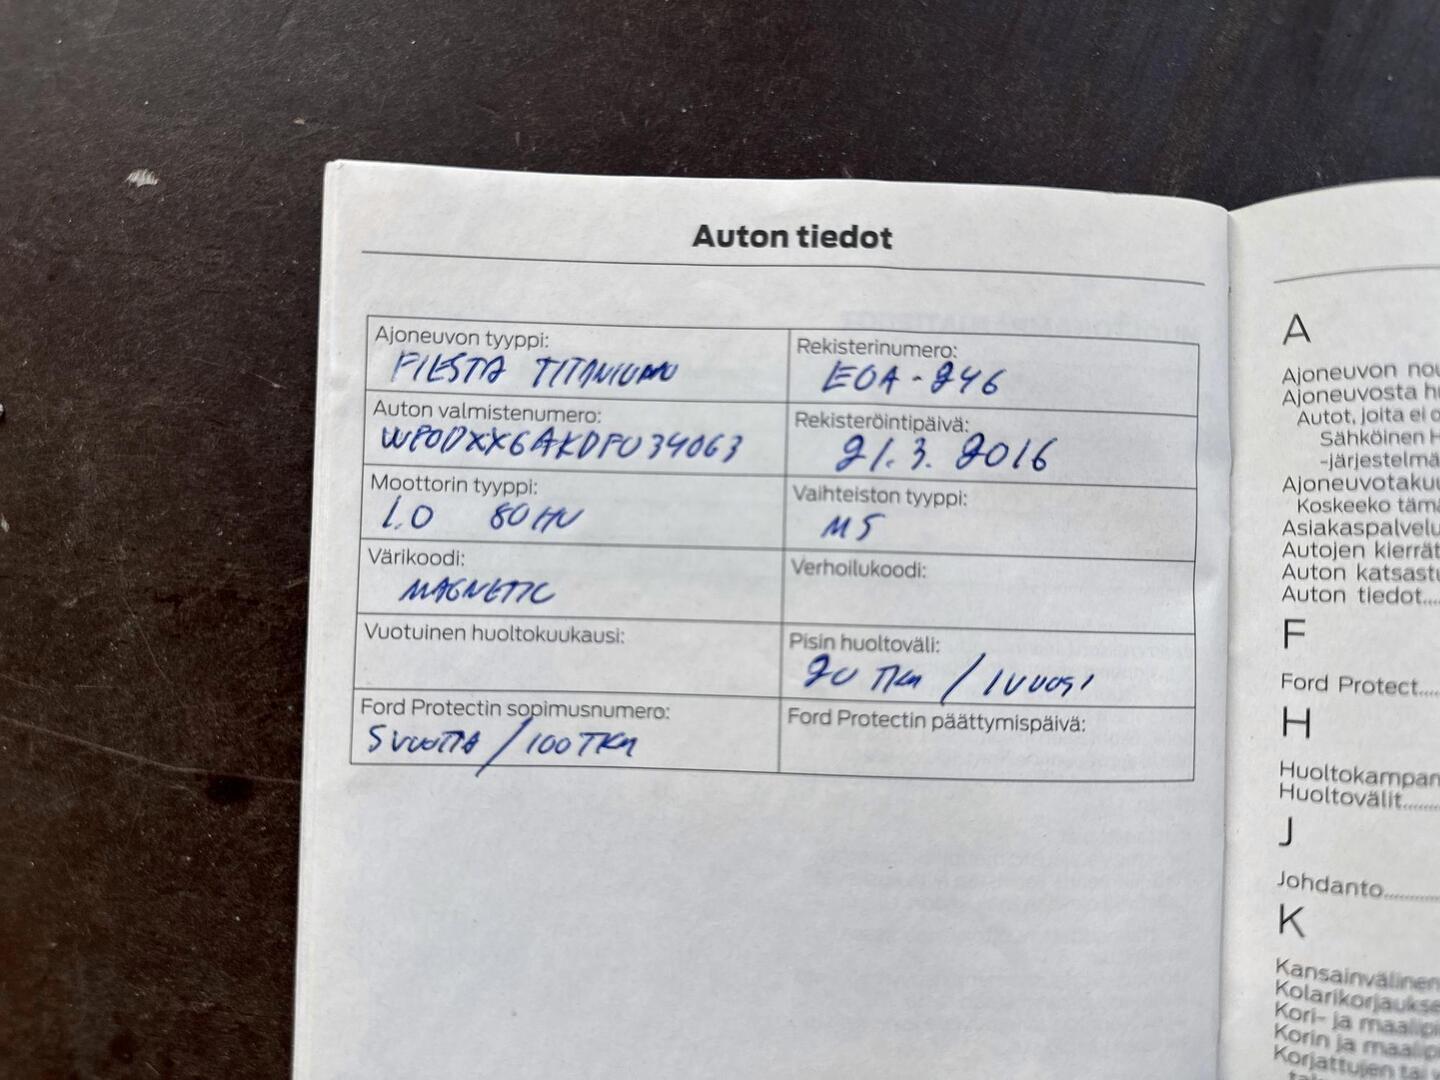 Auton tiedot
Ajoneuvon tyyppi:
FIESTA TITANIUM
Rekisterinumero:
EOA-246
Auton valmistenumero:
WF0DXXGAKDFU34063
Rekisteröintipäivä:
21.3.2016
Moottorin tyyppi:
1.0 80 HV
Vaihteiston tyyppi:
M5
Värikoodi:
MAGNETIC
Verhoilukoodi:
Vuotuinen huoltokuukausi:
Pisin huoltoväli:
20 TKM / 1 VUOSI
Ford Protectin sopimusnumero:
5 VUOTTA / 100 TKM
Ford Protectin päättymispäivä:
A
Ajoneuvon nou
Ajoneuvosta hu
Autot, joita ei o
Sähköinen H
-järjestelmä
Ajoneuvotakuu
Koskeeko tämä
Asiakaspalvelu
Autojen kierrät
Auton katsastu
Auton tiedot....
F
Ford Protect....
H
Huoltokampan
Huoltovälit.........
J
Johdanto............
K
Kansainvälinen
Kolarikorjaukse
Kori- ja maalipi
Korin ja maalipi
Korjattujen tai v